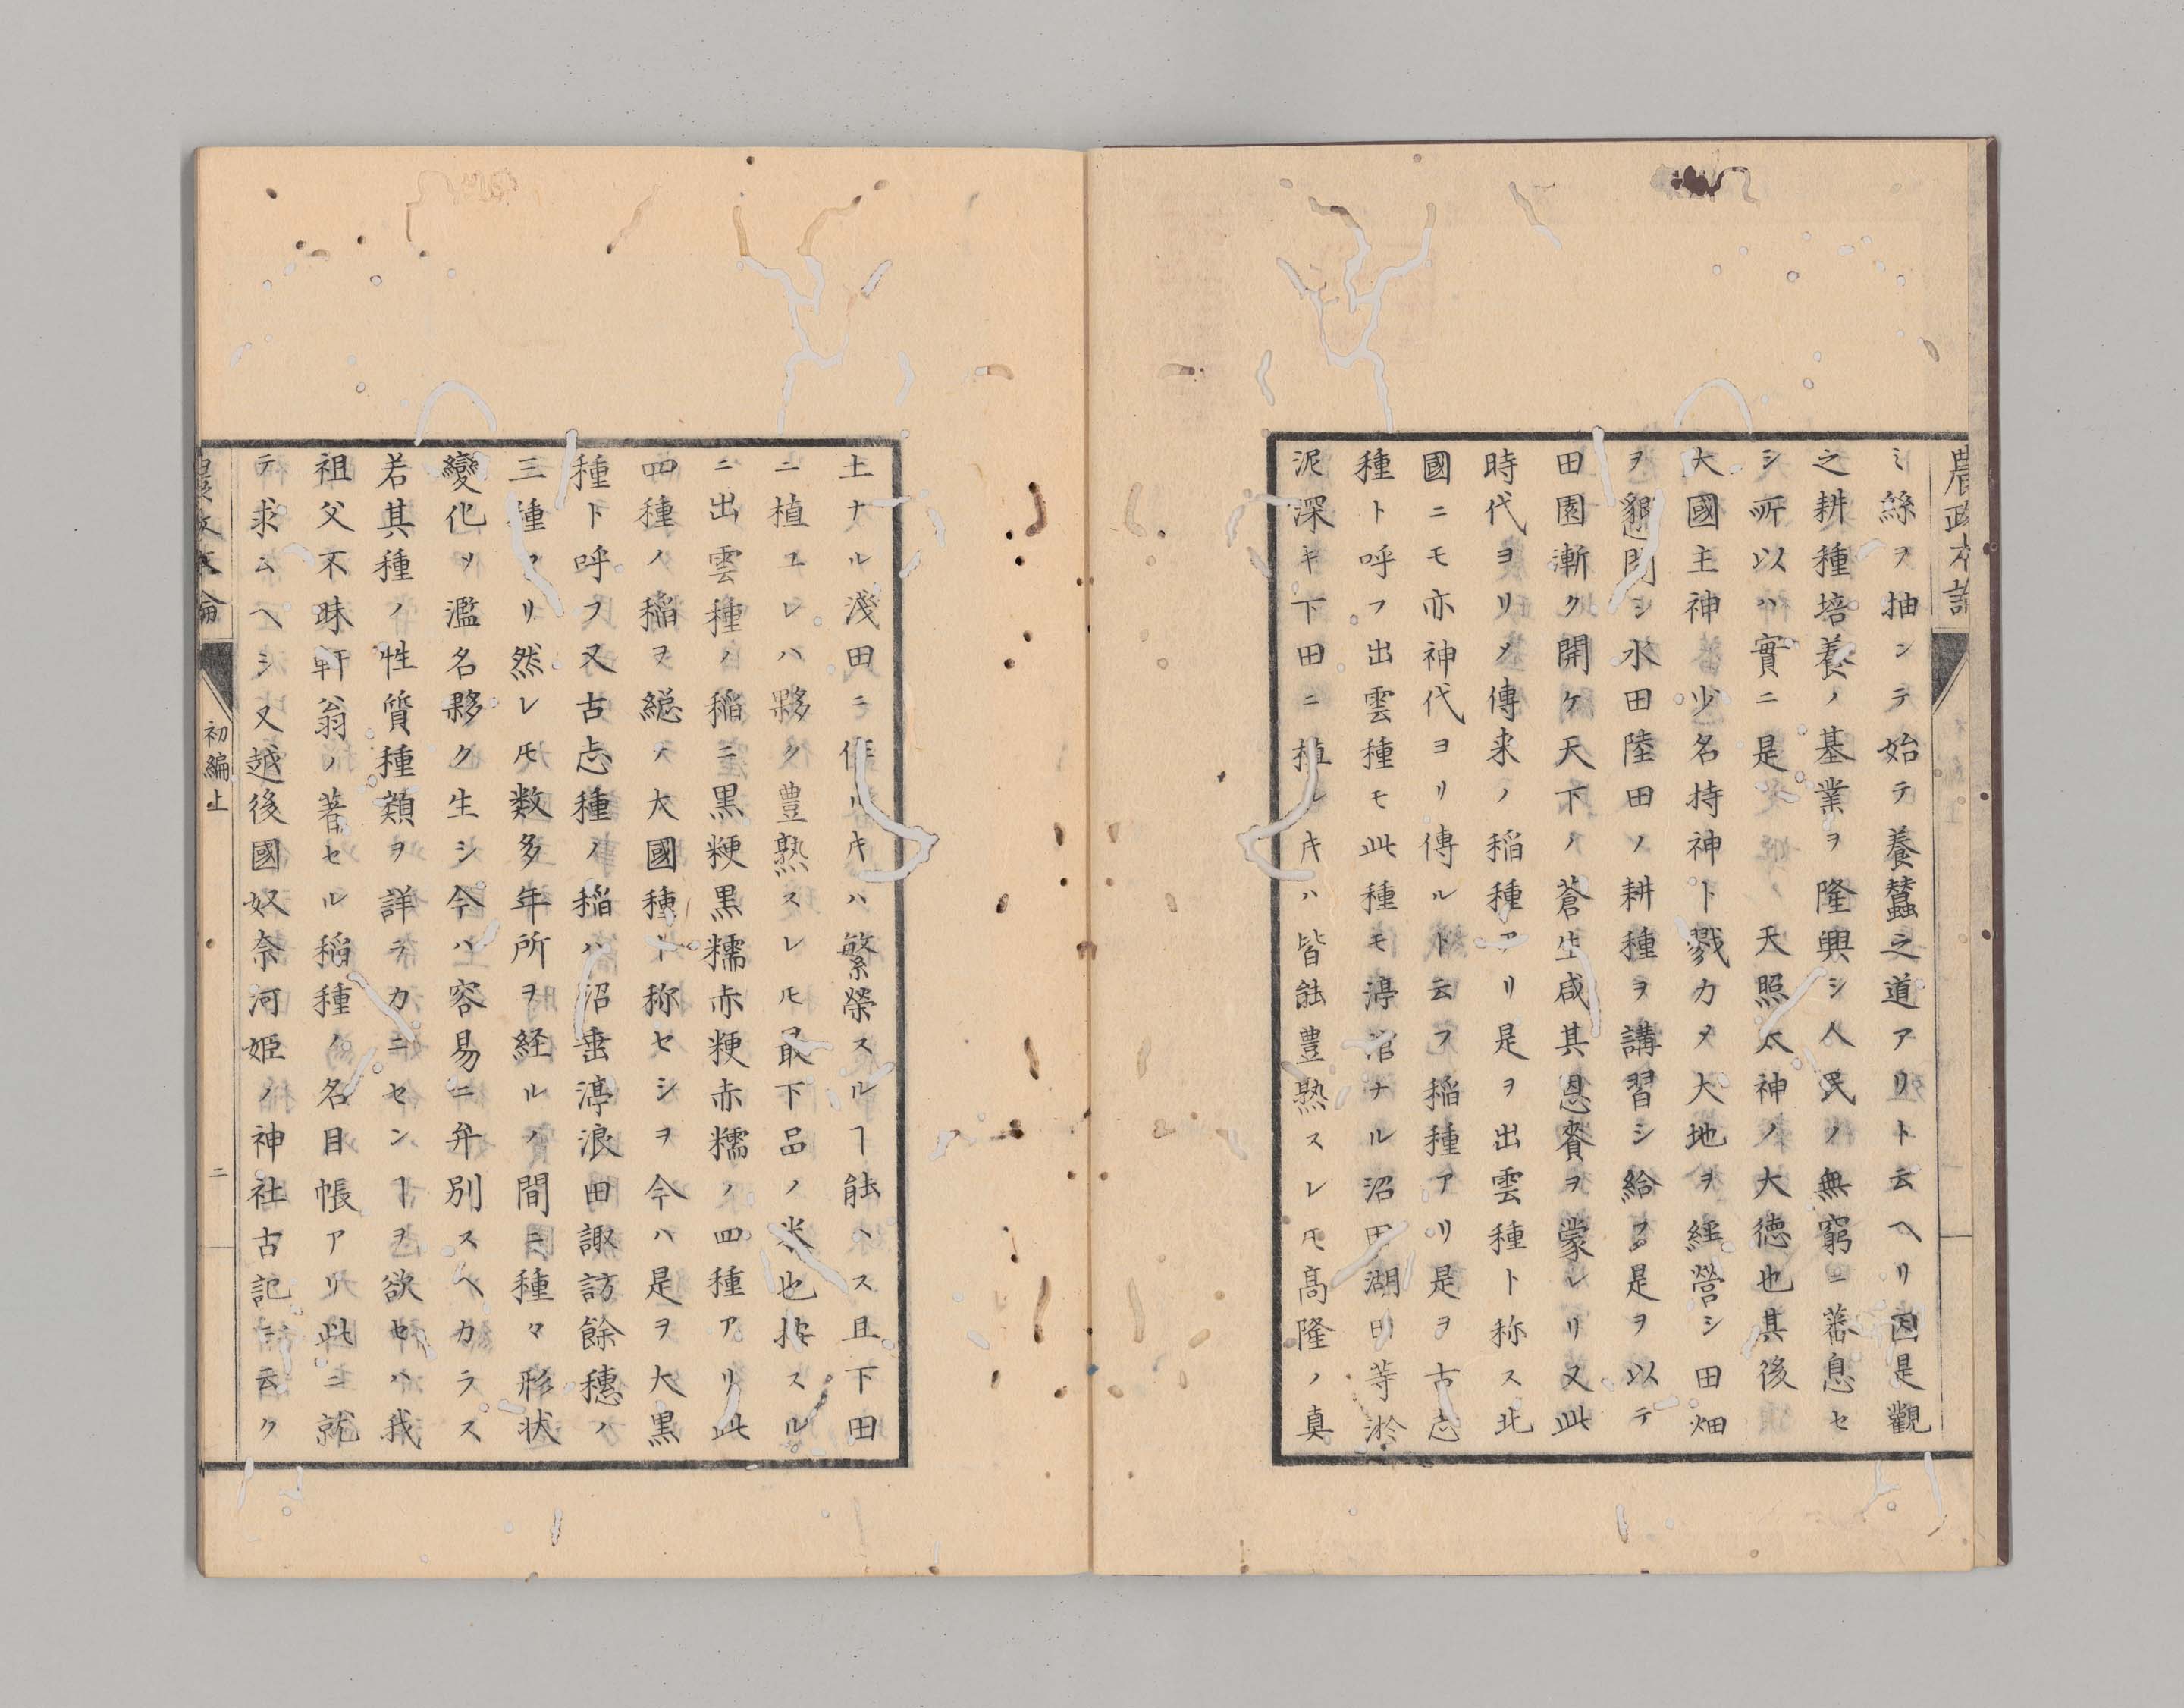 農政本論
ミ絲ヲ抽ンテ始テ養蠶之道アリト云ヘリ因是觀
之耕種培養ノ基業ヲ隆興シ人民ノ無窮ニ蕃息セ
シ所以ハ實ニ是 天照太神ノ大徳也其後
大國主神少名持神ト戮力メ大地ヲ經營シ田畑
ヲ墾開シ水田陸田ノ耕種ヲ講習シ給フ是ヲ以テ
田園漸ク開ケ天下ノ蒼生咸其恩賚ヲ蒙レリ又此
時代ヨリメ傳来ノ稲種アリ是ヲ出雲種ト称ス北
國ニモ亦神代ヨリ傳ルト云フ稲種アリ是ヲ古志
種ト呼フ出雲種モ此種モ渟沼ナル沼田湖田等淤
泥深キ下田ニ植レ𪜈ハ皆能豊熟スレ𪜈髙隆ノ真
土ナル淺田ニ作ル𪜈ハ繁榮スルヿ能ハス且下田
ニ植ユレハ夥ク豊熟スレ𪜈最下品ノ米也按スル
ニ出雲種ノ稲ニ黒粳黒糯赤粳赤糯ノ四種アリ此
四種ノ稲ヲ総メ大國種ト称セシヲ今ハ是ヲ大黒
種ト呼フ又古志種ノ稲ハ沼垂渟浪田諏訪餘穗ノ
三種アリ然レ𪜈数多年所ヲ経ルノ間ニ種々形状
變化リ濫名夥ク生シ今ハ容易ニ弁別スヘカラス
若其種ノ性質種類ヲ詳ラカニセンヿヲ欲セハ我
祖父不昧軒翁ノ著セル稲種ノ名目帳アリ此ニ就
テ求ムヘシ又越後國奴奈河姫ノ神社古記ニ云ク
農政本論
初編上
二